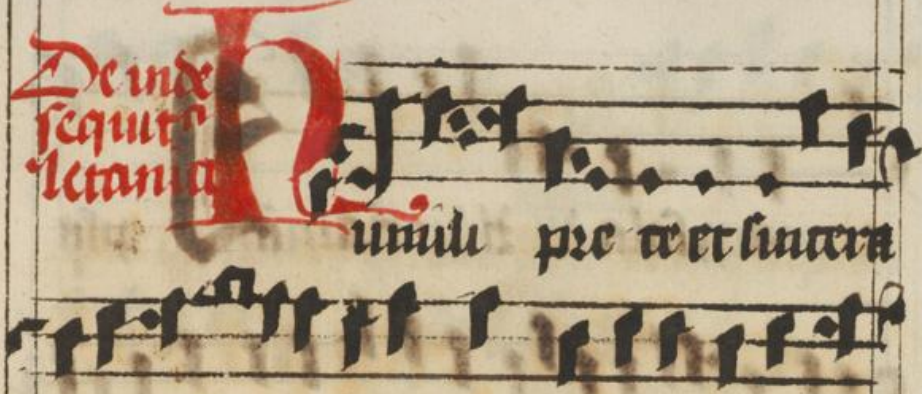 De inde
sequitur
letania
Humili prece et sincera